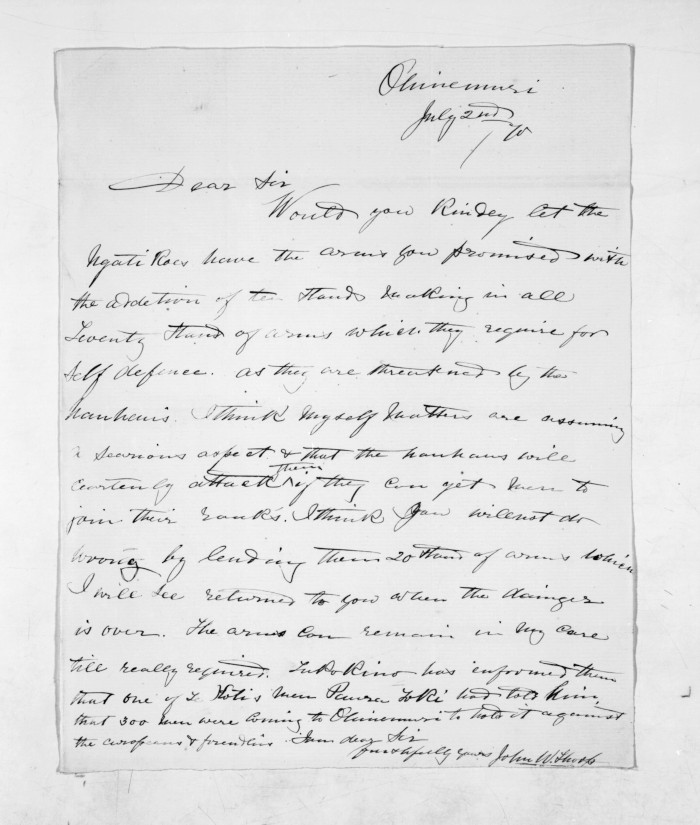 Ohinemuri
July 2nd /70
Dear Sir
Would you kindey let the
Ngati Koes have the arms you promised with
the addetion of ten Stand making in all
Twenty Stand of arms which they require for
self defence. as they are threatened by the
hauhaus. I think myself matters are assuming
a searious aspect & that the hauhaus will
ceartenly attack them if they can get men to
join their ranks. I think you will not do
wrong by lending them 20 stand of arms which
I will see returned to you when the dainger
is over. The arms can remain in my care
till really required. Tukokino has informed them
that one of Te Kotis men Toki had told him
that 300 men were coming to Ohinemuri to hold it against
the europeans & friendlies. I am dear Sir
faithfully yours John W. Thorp